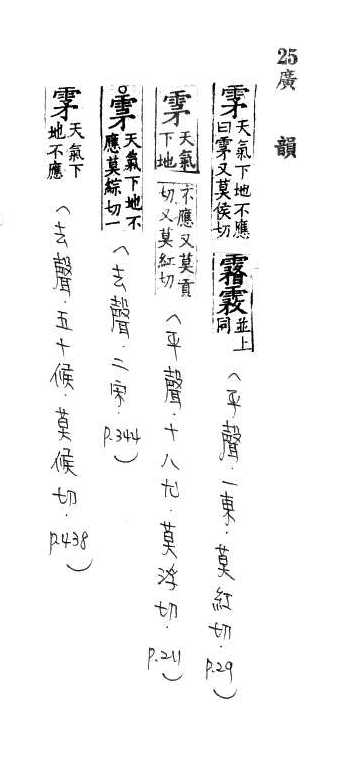 25廣韻
雺天氣下地不應曰雺又莫侯切 霿霚並上同（平聲．一東．莫紅切．P.29）
雺天氣下地不應又莫貢切又莫紅切（平聲．十八尤．莫浮切．P.211）
雺天氣下地不應莫綜切一（去聲．二宋．P.344）
雺天氣下地不應（去聲．五十候．莫候切．P.438）